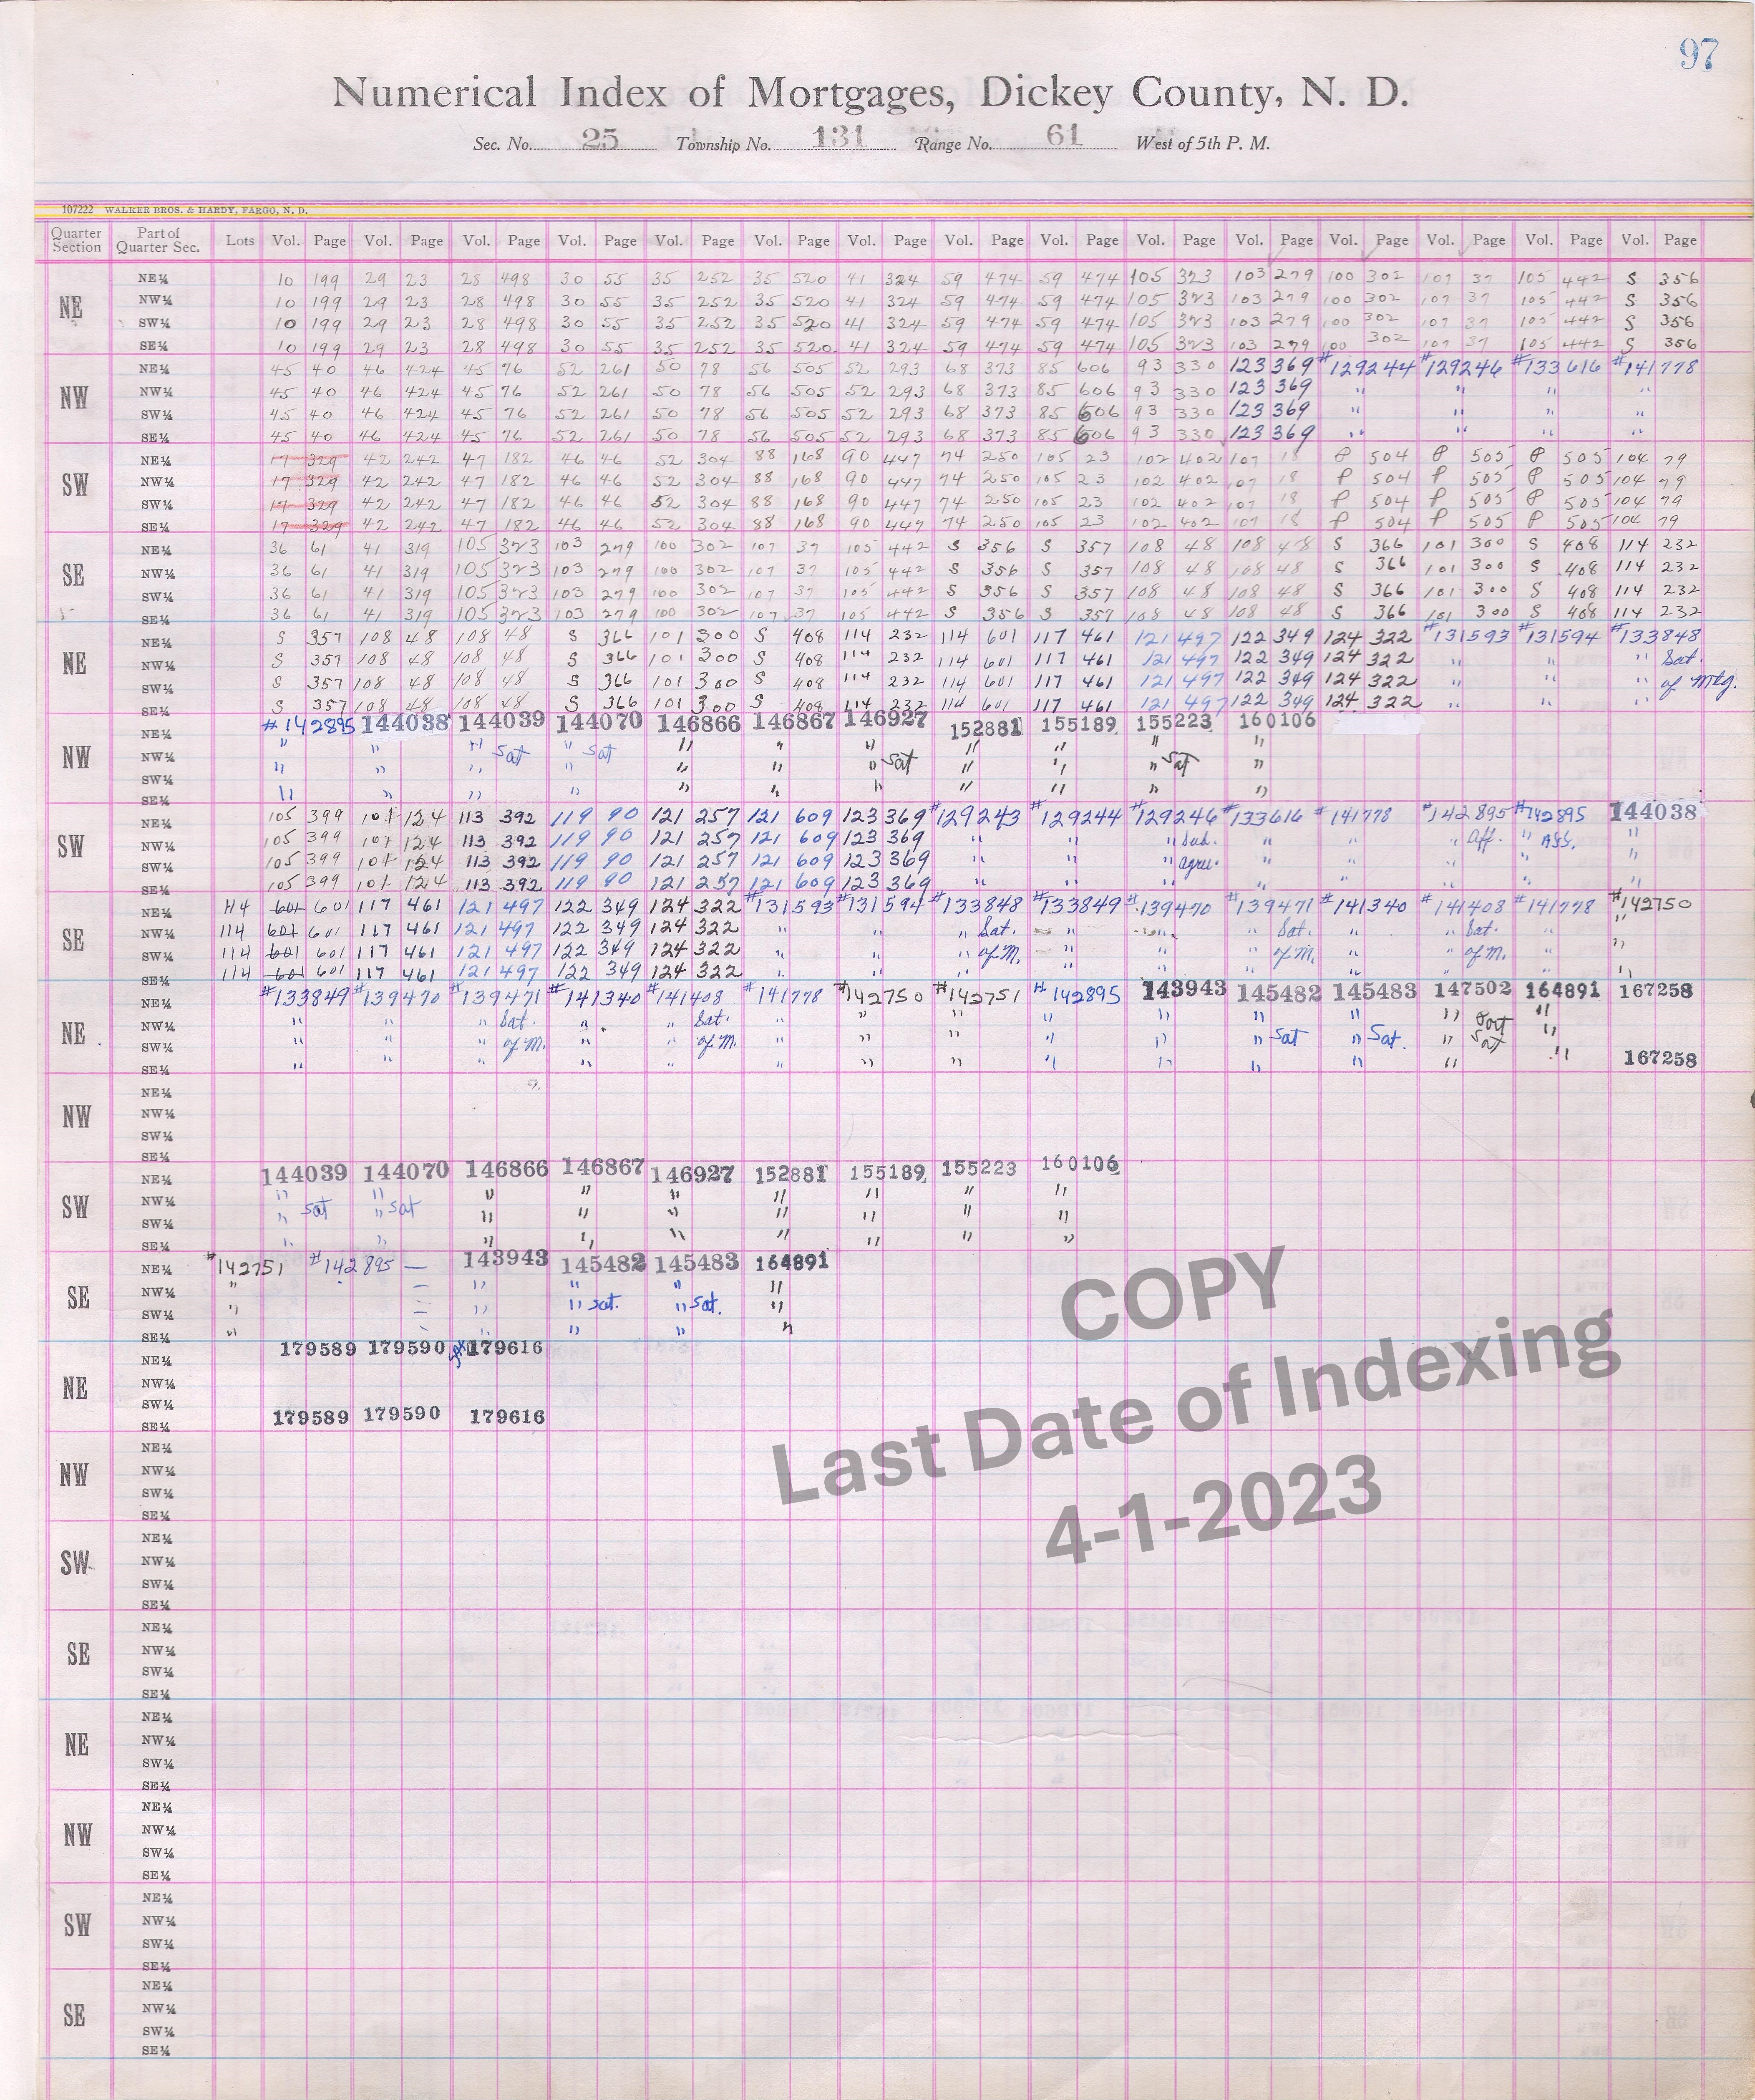 97
Numerical Index of Mortgages, Dickey County, N. D.
Sec. No. 25 Township No. 131 Range No. 61 West of 5th P. M.
107222 WALKER BROS. & HARDY, FARGO, N. D.
Quarter Section Part of Quarter Sec. Lots Vol. Page Vol. Page Vol. Page Vol. Page Vol. Page Vol. Page Vol. Page Vol. Page Vol. Page Vol. Page Vol. Page Vol. Page Vol. Page Vol. Page Vol. Page
NE
NE¼ 10 199 29 23 28 498 30 55 35 252 35 520 41 324 59 474 59 474 105 323 103 279 100 302 107 37 105 442 S 356
NW¼ 10 199 29 23 28 498 30 55 35 252 35 520 41 324 59 474 59 474 105 323 103 279 100 302 107 37 105 442 S 356
SW¼ 10 199 29 23 28 498 30 55 35 252 35 520 41 324 59 474 59 474 105 323 103 279 100 302 107 37 105 442 S 356
SE¼ 10 199 29 23 28 498 30 55 35 252 35 520 41 324 59 474 59 474 105 323 103 279 100 302 107 37 105 442 S 356
NW
NE¼ 45 40 46 424 45 76 52 261 50 78 56 505 52 293 68 373 85 606 93 330 123 369 #129244 #129246 #133616 #141778
NW¼ 45 40 46 424 45 76 52 261 50 78 56 505 52 293 68 373 85 606 93 330 123 369 " " " "
SW¼ 45 40 46 424 45 76 52 261 50 78 56 505 52 293 68 373 85 606 93 330 123 369 " " " "
SE¼ 45 40 46 424 45 76 52 261 50 78 56 505 52 293 68 373 85 606 93 330 123 369 " " " "
SW
NE¼ 17 329 42 242 47 182 46 46 52 304 88 168 90 447 74 250 105 23 102 402 107 18 P 504 P 505 P 505 104 79
NW¼ 17 329 42 242 47 182 46 46 52 304 88 168 90 447 74 250 105 23 102 402 107 18 P 504 P 505 P 505 104 79
SW¼ 17 329 42 242 47 182 46 46 52 304 88 168 90 447 74 250 105 23 102 402 107 18 P 504 P 505 P 505 104 79
SE¼ 17 329 42 242 47 182 46 46 52 304 88 168 90 447 74 250 105 23 102 402 107 18 P 504 P 505 P 505 104 79
SE
NE¼ 36 61 41 319 105 323 103 279 100 302 107 37 105 442 S 356 S 357 108 48 108 48 S 366 101 300 S 408 114 232
NW¼ 36 61 41 319 105 323 103 279 100 302 107 37 105 442 S 356 S 357 108 48 108 48 S 366 101 300 S 408 114 232
SW¼ 36 61 41 319 105 323 103 279 100 302 107 37 105 442 S 356 S 357 108 48 108 48 S 366 101 300 S 408 114 232
SE¼ 36 61 41 319 105 323 103 279 100 302 107 37 105 442 S 356 S 357 108 48 108 48 S 366 101 300 S 408 114 232
NE
NE¼ S 357 108 48 108 48 S 366 101 300 S 408 114 232 114 601 117 461 121 497 122 349 124 322 #131593 #131594 #133848
NW¼ S 357 108 48 108 48 S 366 101 300 S 408 114 232 114 601 117 461 121 497 122 349 124 322 " " " Sat.
SW¼ S 357 108 48 108 48 S 366 101 300 S 408 114 232 114 601 117 461 121 497 122 349 124 322 " " " of Mtg.
SE¼ S 357 108 48 108 48 S 366 101 300 S 408 114 232 114 601 117 461 121 497 122 349 124 322 " " "
NW
NE¼ #142895 144038 144039 144070 146866 146867 146927 152881 155189 155223 160106
NW¼ " " " Sat " Sat " " " " " " "
SW¼ " " " " " " " Sat " " " Sat "
SE¼ " " " " " " " " " " "
SW
NE¼ 105 399 101 124 113 392 119 90 121 257 121 609 123 369 #129243 #129244 #129246 #133616 #141778 #142895 #142895 144038
NW¼ 105 399 101 124 113 392 119 90 121 257 121 609 123 369 " " " Sub. " " " Aff. " Ass. "
SW¼ 105 399 101 124 113 392 119 90 121 257 121 609 123 369 " " " agree. " " " " "
SE¼ 105 399 101 124 113 392 119 90 121 257 121 609 123 369 " " " " " " " "
SE
NE¼ 114 601 601 117 461 121 497 122 349 124 322 #131593 #131594 #133848 #133849 #139470 #139471 #141340 #141408 #141778 #142750
NW¼ 114 601 601 117 461 121 497 122 349 124 322 " " " Sat. " " " Sat. " " Sat. " "
SW¼ 114 601 601 117 461 121 497 122 349 124 322 " " " of M. " " " of M. " " of M. " "
SE¼ 114 601 601 117 461 121 497 122 349 124 322 " " " " " " " " " "
NE
NE¼ #133849 #139470 #139471 #141340 #141408 #141778 #142750 #142751 #142895 143943 145482 145483 147502 164891 167258
NW¼ " " " Sat. " " Sat. " " " " " " " " Part "
SW¼ " " " of M. " " of M. " " " " " " Sat " Sat. " Sat "
SE¼ " " " " " " " " " " " " " " 167258
NW
NE¼
NW¼
SW¼
SE¼
SW
NE¼ 144039 144070 146866 146867 146927 152881 155189 155223 160106
NW¼ " " " " " " " " "
SW¼ " Sat " Sat " " " " " " "
SE¼ " " " " " " " " "
SE
NE¼ #142751 #142895 — 143943 145482 145483 164891
NW¼ " — " " " "
SW¼ " — " " Sat. " Sat. "
SE¼ " — " " " "
NE
NE¼ 179589 179590 179616
NW¼
SW¼
SE¼ 179589 179590 179616
NW
NE¼
NW¼
SW¼
SE¼
SW
NE¼
NW¼
SW¼
SE¼
SE
NE¼
NW¼
SW¼
SE¼
NE
NE¼
NW¼
SW¼
SE¼
NW
NE¼
NW¼
SW¼
SE¼
SW
NE¼
NW¼
SW¼
SE¼
SE
NE¼
NW¼
SW¼
SE¼
COPY
Last Date of Indexing
4-1-2023